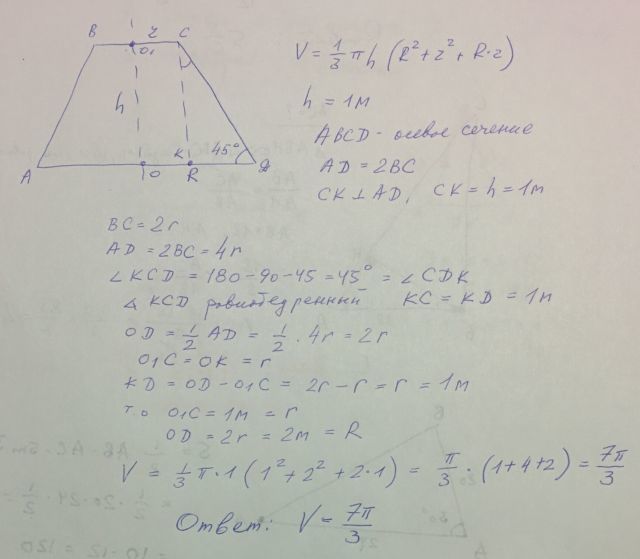 B r C
O₁
V = 1/3 π h (R² + r² + R·r)
h
h = 1м
ABCD - осевое сечение
45°
AD = 2BC
A O K R D
CK ⊥ AD, CK = h = 1м
BC = 2r
AD = 2BC = 4r
∠KCD = 180 - 90 - 45 = 45° = ∠CDK
△ KCD равнобедренный KC = KD = 1м
OD = 1/2 AD = 1/2 · 4r = 2r
O₁C = OK = r
KD = OD - O₁C = 2r - r = r = 1м
т.о O₁C = 1м = r
OD = 2r = 2м = R
V = 1/3 π · 1 (1² + 2² + 2·1) = π/3 · (1+4+2) = 7π/3
Ответ: V = 7π/3